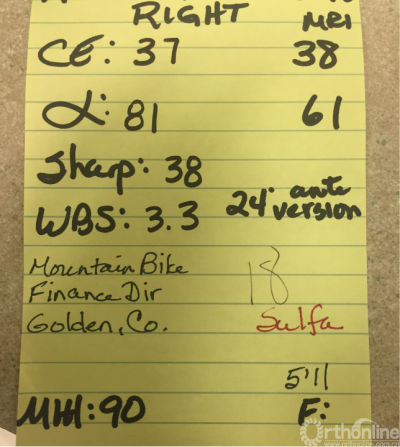 RIGHT MRI
CE: 37 38
α: 81 61
Sharp: 38
WBS: 3.3 24° ante version
Mountain Bike
Finance Dir 18
Golden, Co. Sulfa
5'11
MHH: 90 F:
Orthonline